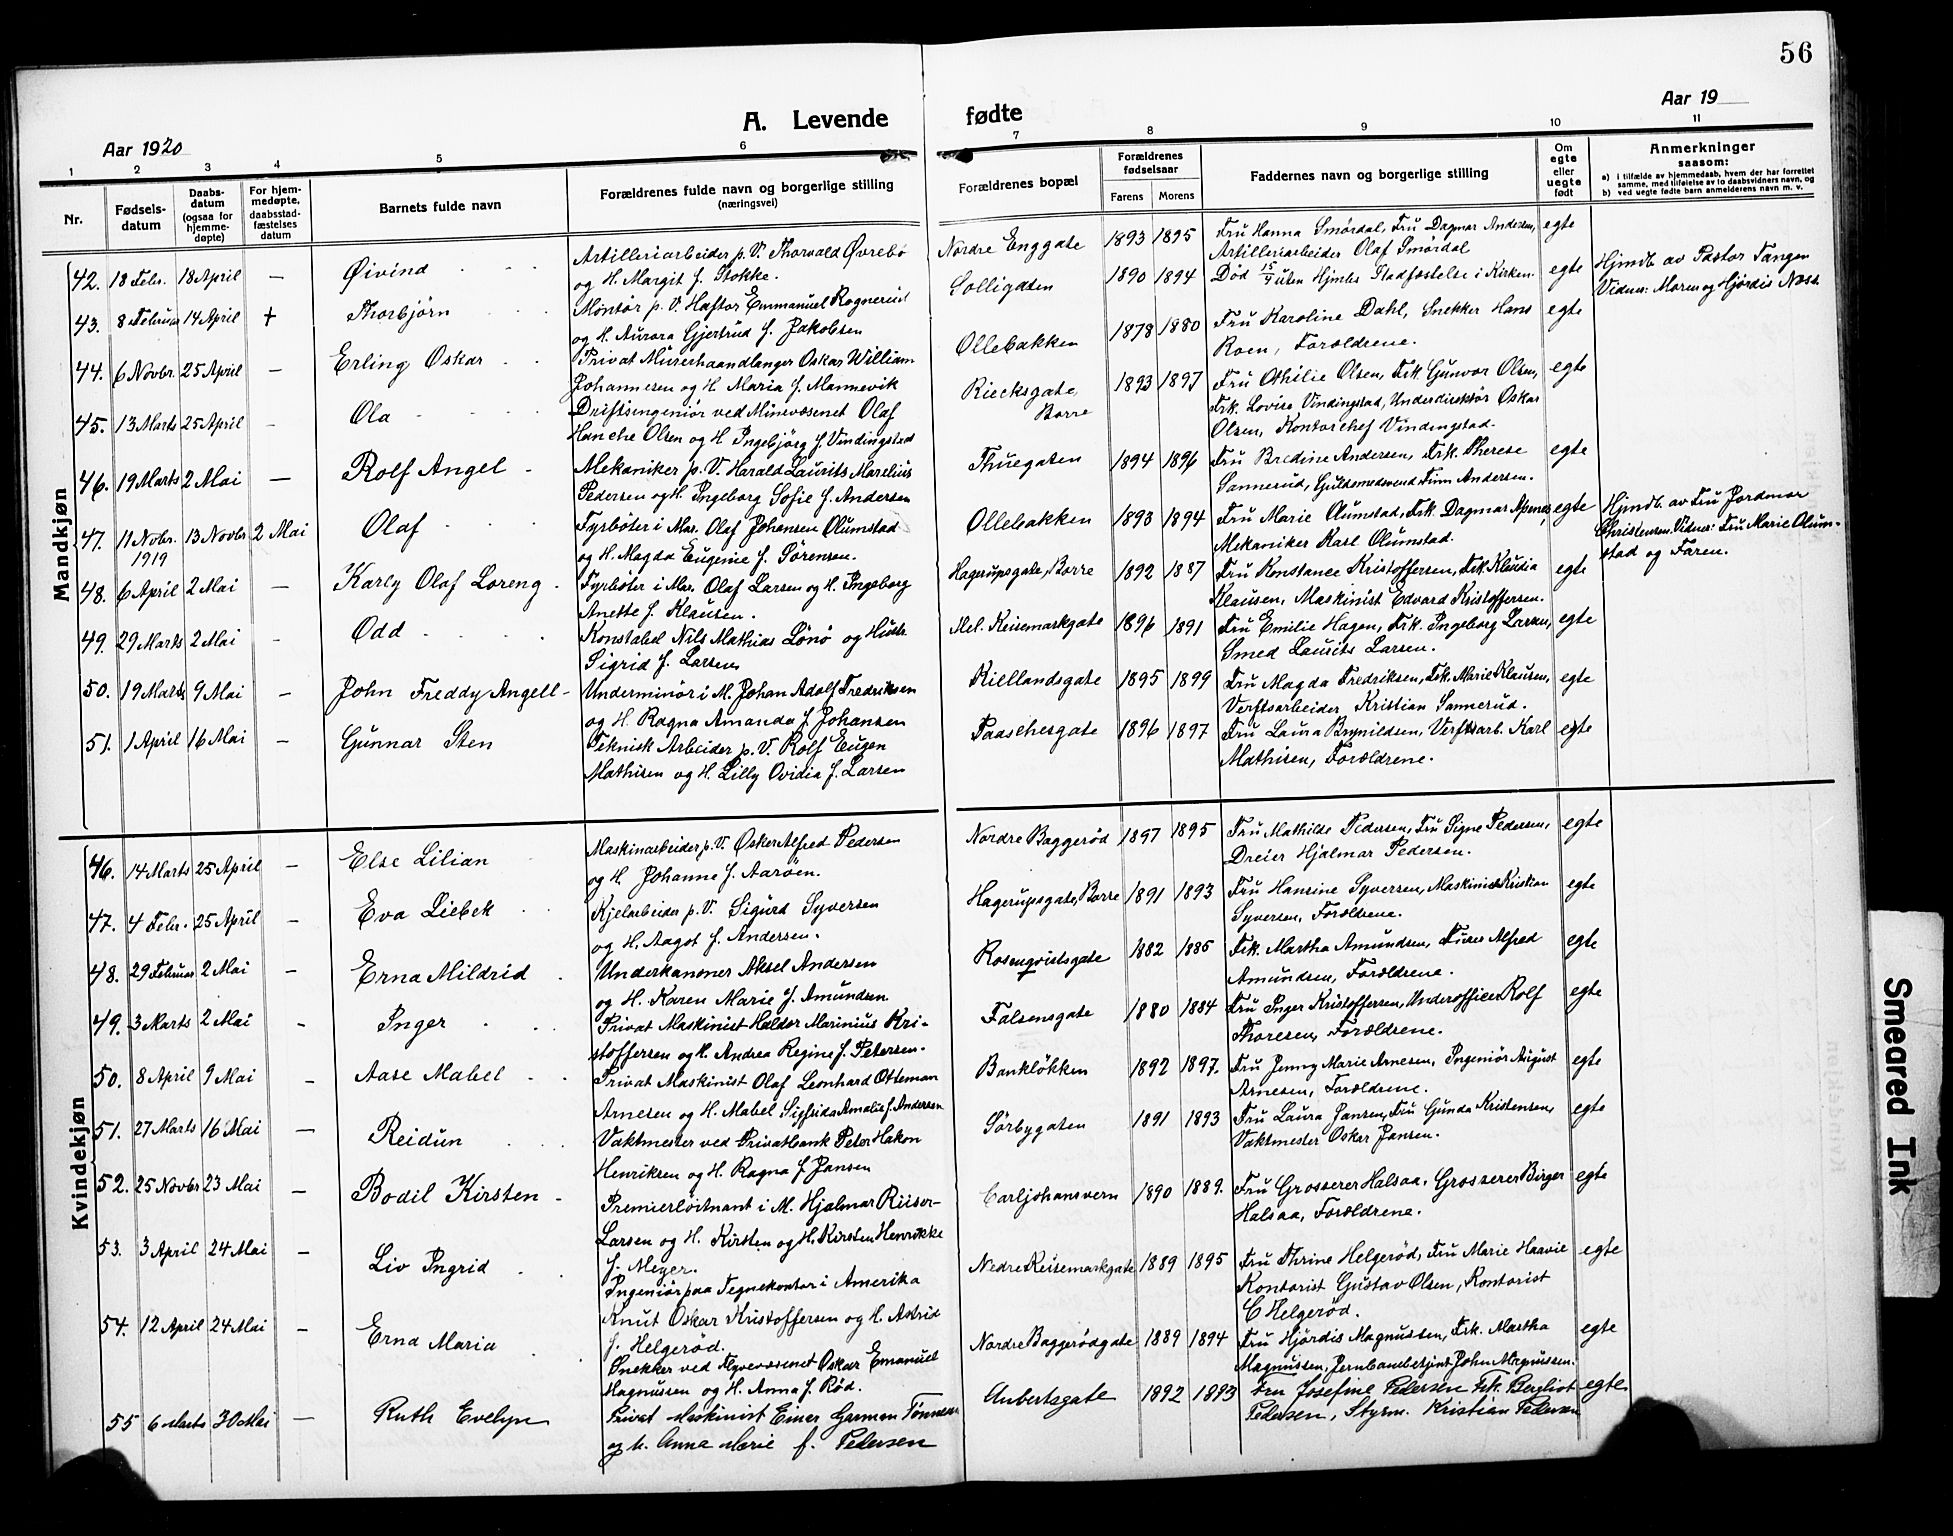 56
A. Levende fødte
Aar 1920
Aar 19
1 2 3 4 5 6 7 8 9 10 11
Nr. | Fødselsdatum | Daabsdatum (ogsaa for hjemmedøpte) | For hjemmedøpte, daabsstadfæstelses datum | Barnets fulde navn | Forældrenes fulde navn og borgerlige stilling (næringsvei) | Forældrenes bopæl | Forældrenes fødselsaar Farens Morens | Faddernes navn og borgerlige stilling | Om egte eller uegte født | Anmerkninger saasom: a) i tilfælde av hjemmedaab, hvem der har forrettet samme, med tilføielse av to daabsvidners navn, og b) ved uegte fødte barn anmelderens navn m. v.
Mandkjøn
42. 18 Febr. 18 April — Øivind Artilleriarbeider p. V. Thorvald Øvrebö Nordre Enggate 1893 1895 Fru Hanna Smørdal, Fru Dagmar Andersen, egte
og H. Margit f. Stokke. Artilleriarbeider Olaf Smørdal
43. 8 Februar 14 April + Thorbjörn Montör p. V. Haftor Emmanuel Rognerud Solligaten 1890 1894 Død 15/4 uten Hjmdbs Stadfæstelse i Kirken. egte Hjmdb. av Pastor Tangen
og H. Aurora Gjertrud f. Jakobsen Vidner: Maren og Hjördis Næss.
44. 6 Novbr. 25 April — Erling Oskar Privat Murerhaandlanger Oskar William Ollebakken 1878 1880 Fru Karoline Dahl, Snekker Hans egte
Johannesen og H. Maria f. Mannevik Roen, Forældrene.
45. 13 Marts 25 April - Ola Driftsingeniör ved Minevæsenet Olaf Riecksgate, Borre 1893 1897 Fru Othilie Olsen, Frk. Gunvor Olsen, egte
Hanche Olsen og H. Ingebjörg f. Vindingstad Frk. Lovise Vindingstad, Underdirektör Oskar
Olsen, Kontorchef Vindingstad.
46. 19 Marts 2 Mai — Rolf Angel Mekaniker p. V. Harald Laurits Marelius Thuegaten 1894 1896 Fru Bredine Andersen, Frk. Therese egte
Pedersen og H. Ingeborg Sofie f. Andersen Sannerud, Guldsmedsvend Finn Andersen.
47. 11 Novbr. 1919 13 Novbr 2 Mai Olaf Fyrböter i Mar. Olaf Johansen Olumstad Ollebakken 1893 1894 Fru Marie Olumstad, Frk. Dagmar Apenes, egte Hjmdb. av Fru Jordmor
og H. Magda Eugenie f. Sörensen. Mekaniker Karl Olumstad. Christensen. Vidner: Fru Marie Olum-
stad og Faren.
48. 6 April 2 Mai — Karly Olaf Loreng Fyrböter i Mar. Olaf Larsen og H. Ingeborg Hagerupsgate, Borre 1892 1887 Fru Konstance Kristoffersen, Frk. Klaudia egte
Anette f. Klausen. Klausen, Maskinist Edvard Kristoffersen.
49. 29 Marts 2 Mai - Odd Konstabel Nils Mathias Lönö og Hustr. Mel. Keisemarkgate 1896 1891 Fru Emilie Hagen, Frk. Ingeborg Larsen, egte
Sigrid f. Larsen Smed Laurits Larsen.
50. 19 Marts 9 Mai — John Freddy Angell Underminör i M. Johan Adolf Fredriksen Kiellandsgate 1895 1899 Fru Magda Fredriksen, Frk. Marie Klausen, egte
og H. Ragna Amanda f. Johansen Verftsarbeider Kristian Sannerud.
51. 1 April 16 Mai — Gunnar Sten Teknisk Arbeider p. V. Rolf Eugen Paaschesgate 1896 1897 Fru Laura Brynildsen, Verftsarb. Karl egte
Mathisen og H. Lilly Ovidia f. Larsen Mathisen, Forældrene.
Kvindekjøn
46. 14 Marts 25 April — Else Lilian Maskinarbeider p. V. Oskar Alfred Pedersen Nordre Baggeröd 1897 1895 Fru Mathilde Pedersen, Fru Signe Pedersen, egte
og H. Johanne f. Aaröen. Dreier Hjalmar Pedersen.
47. 4 Febr. 25 April — Eva Liebek Kjelarbeider p. V. Sigurd Syversen Hagerupsgate, Borre 1891 1893 Fru Hansine Syversen, Maskinist Kristian egte
og H. Aagot f. Andersen. Syversen, Forældrene.
48. 29 Februar 2 Mai — Erna Mildrid Underkanoner Aksel Andersen Rosenqvistsgate 1882 1885 Frk. Martha Amundsen, Furer Alfred egte
og H. Karen Marie f. Amundsen Amundsen, Forældrene.
49. 3 Marts 2 Mai - Inger Privat Maskinist Haldor Marinius Kri- Falsensgate 1880 1884 Fru Inger Kristoffersen, Underofficer Rolf egte
stoffersen og H. Andrea Regine f. Petersen. Thoresen, Forældrene.
50. 8 April 9 Mai - Aase Mabel Privat Maskinist Olaf Leonhard Otteman Banklökken 1892 1897. Fru Jenny Marie Arnesen, Ingeniör August egte
Arnesen og H. Mabel Sigfrida Amalie f. Andersen Arnesen, Forældrene.
51. 27 Marts 16 Mai — Reidun Vaktmester ved Privatbank Peter Hakon Sörbygaten 1891 1893 Fru Laura Jansen, Fru Gunda Kristensen, egte
Henriksen og H. Ragna f. Jansen Vaktmester Oskar Jansen.
52. 25 Novbr 23 Mai — Bodil Kirsten Premierlöitnant i M. Hjalmar Riiser- Carljohansvern 1890 1889. Fru Grosserer Halsaa, Grosserer Birger egte
Larsen og H. Kirsten og H. Kirsten Henrikke Halsaa, Forældrene.
f. Meyer.
53. 3 April 24 Mai — Liv Ingrid Ingeniör paa Tegnekontor i Amerika Nedre Keisemarkgate 1889 1895 Fru Thrine Helgeröd, Fru Marie Harvie egte
Knut Oskar Kristoffersen og H. Astrid Kontorist Gustav Olsen, Kontorist
f. Helgeröd. C Helgeröd.
54. 12 April 24 Mai — Erna Maria Snekker ved Flyvevæsenet Oskar Emanuel Nordre Baggerödgate 1889 1894 Fru Hjördis Magnussen, Frk. Martha egte
Magnussen og H. Anna f. Röd. Magnussen, Jernbanebetjent John Magnussen.
55 6 Marts 30 Mai — Ruth Evelyn Privat Maskinist Einer Garmen Tönnesen Aubertsgate 1892 1893 Fru Josefine Pedersen Frk. Bergliot egte
og h. Anna Marie f. Pedersen Pedersen, Styrm. Kristian Pedersen
Smeared Ink